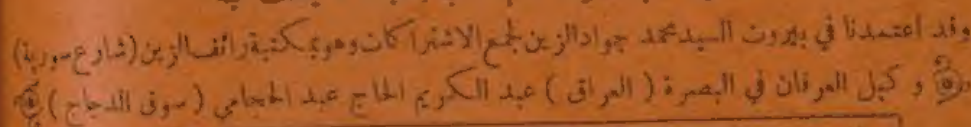 وقد اعتمدنا في بيروت السيد محمد جواد الزين لجمع الاشتراكات وهو بمكتبة رائف الزين (شارع سورية)
وكيل العرفان في البصرة ( العراق ) عبد الكريم الحاج عبد الحجامي ( سوق الدجاج )